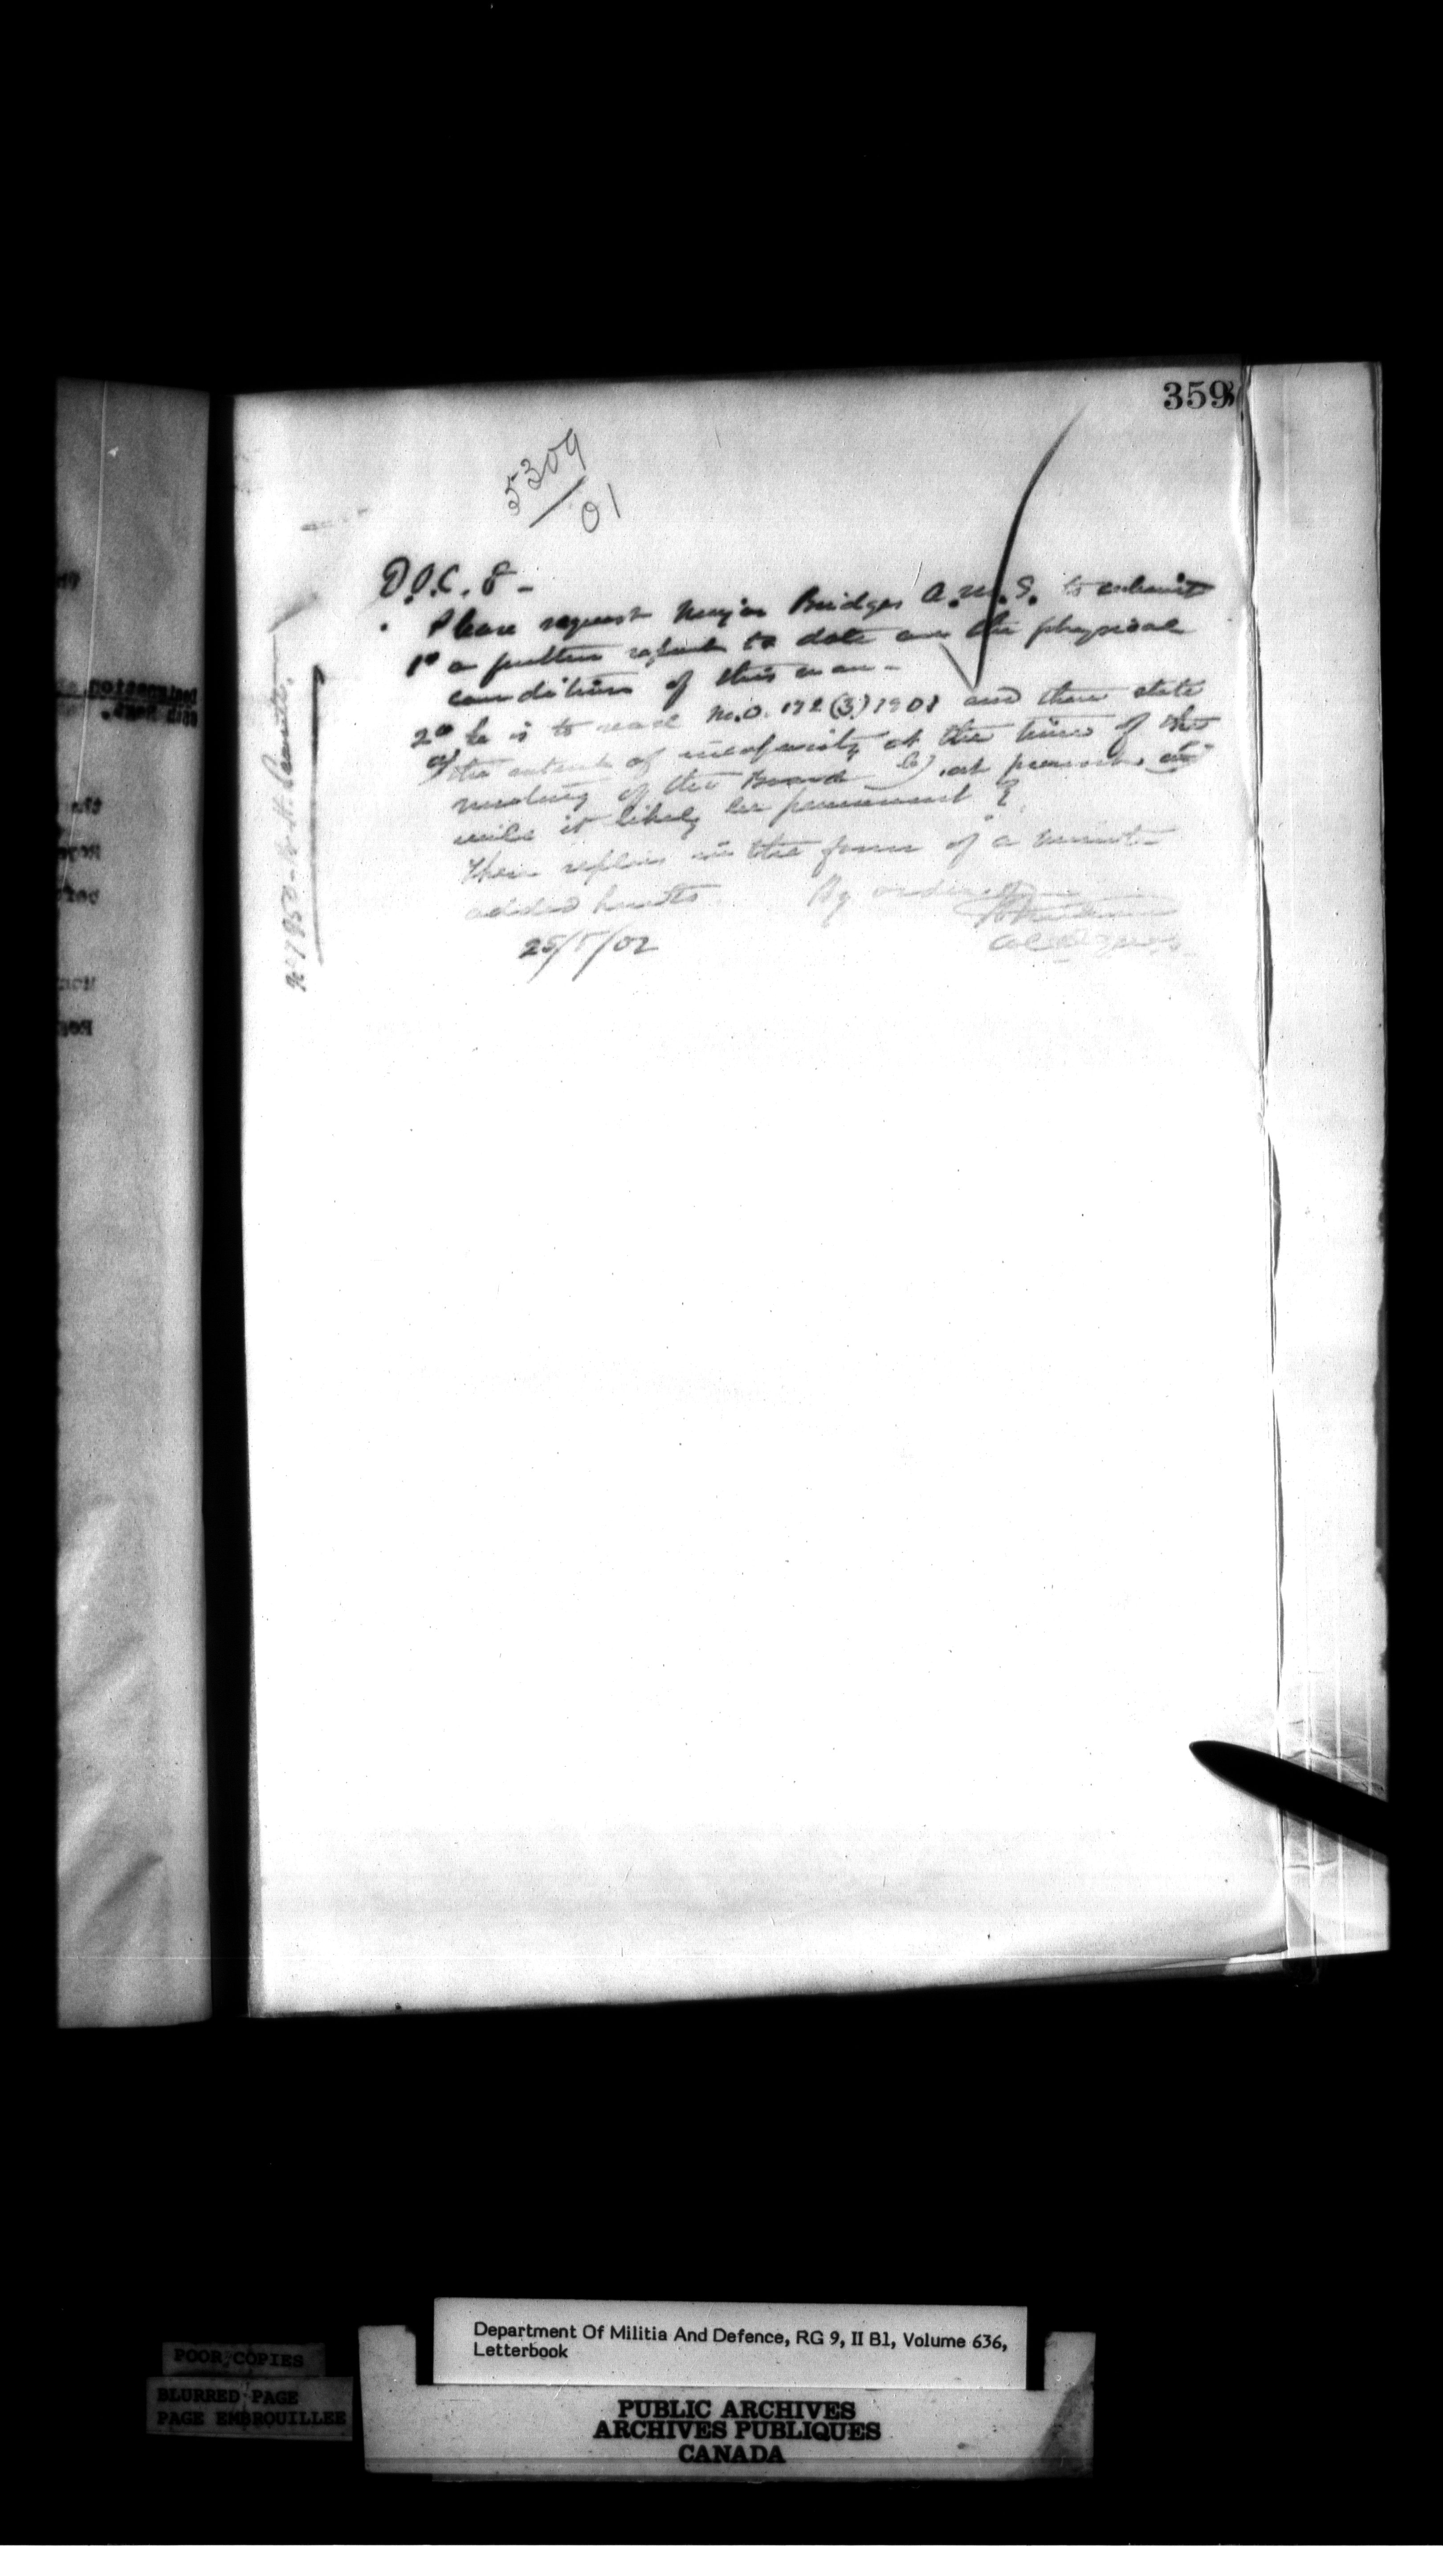 359
5309
01
D.O.C. 8 -
Please request Major Bridges A.M.S. to submit
1º a further report to date on the physical
condition of this man -
2º he is to read M.O. 172 (3) 1901 and then state
a) the extent of incapacity at the time of the
meeting of the Board b) at present
will it likely be permanent ?
Their replies in the form of a minute
added hereto. By order
25/5/02
Col.
No 7850
Department Of Militia And Defence, RG 9, II B1, Volume 636,
Letterbook
POOR COPIES
BLURRED PAGE
PAGE EMBROUILLEE
PUBLIC ARCHIVES
ARCHIVES PUBLIQUES
CANADA